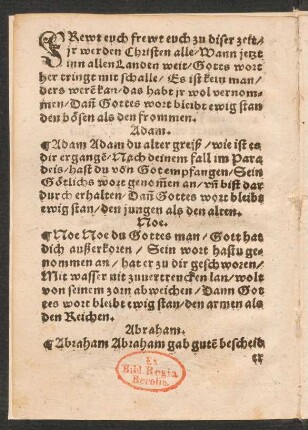 FRewt euch frewt euch zu diser zeit/
jr werden Christen alle/ Wann jetzt
inn allen Landen weit/ Gottes wort
her tringt mit schalle/ Es ist kein man/
ders werē kan/ das habt jr wol vernom⸗
men/ Dañ Gottes wort bleibt ewig stan
den bösen als den frommen.
Adam.
¶ Adam Adam du alter greiß/ wie ist es
dir ergangē/ Nach deinem fall im Para
deis/ hast du vōn Got empfangen/ Sein
Götlichs wort genom̄en an/ vn̄ bist dar
durch erhalten/ Dañ Gottes wort bleibt
ewig stan/ den jungen als den alten.
Noe.
¶ Noe Noe du Gottes man/ Gott hat
dich außerkoren/ Sein wort hastu ge⸗
nommen an/ hat er zu dir geschworen/
Mit wasser nit zuuertrencken lan/ wolt
von seinem zorn abweichen/ Dann Got
tes wort bleibt ewig stan/ den armen als
den Reichen.
Abraham.
¶ Abraham Abraham gab gutē bescheid
er
Ex
Bibl. Regia
Berolin.